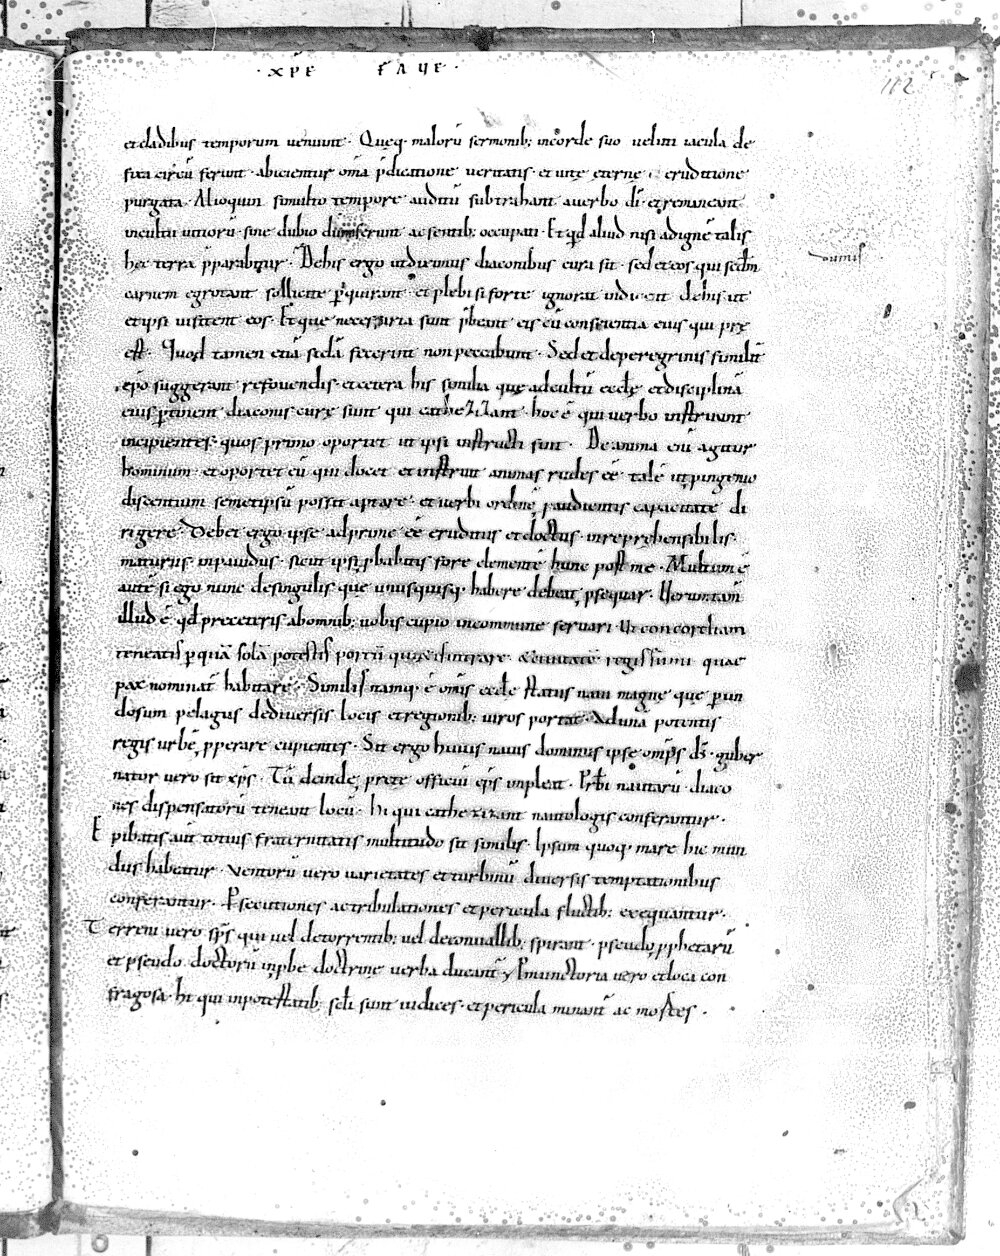 · XPE FAUE ·
112
et cladibus temporum ueniunt · Queq· malorũ sermonib; incorde suo uelim iacula de
fixa circũ ferunt · abicientur om̃ia p̃dicatione ueritatis · et uitę eternę · eruditione
purgata · Alioquin simulto tempore auditũ subtrahant auerbo dĩ · et remaneant
incultu uitiorũ sine dubio ac sentib; occupati · Et qd aliud nisi adignẽ talis
hec terra p̃parabitur · De his ergo ut diximus diaconibus cura sit · sed et eos qui scdm
carnem egrotant sollicite p̱quirant · et plebi si forte ignorat indicent de his ut
et ipsi uisitent eos · Et que necessaria sunt p̃beant eis cũ conscientia eius qui prę
est · Quod tamen etiã si clã fecerint non peccabunt · Sed et de peregrinis similit̃
ep̃o suggerant refouendis · et cetera his similia que ad cultũ eccłę et disciplinã
eius p̱tinent diaconis curę sunt qui cathezizant · hoc ẽ qui uerbo instruunt
incipientes · quos primo oportet ut ipsi instructi sint · De anima eni agitur
hominum · et oportet eũ qui docet et instruit animas rudes eẽ talẽ ut p ingenio
discentium semetipsũ possit aptare · et uerbi ordinẽ p audientis capacitate di
rigere · Debet ergo ipse adprime eẽ eruditus et doctus · inreprehensibilis ·
maturus · inpauidus · sicut ipsi p̱babitis fore clementẽ hunc post me · Multum ẽ
autẽ si ego nunc de singulis que unusquisq· habere debeat p̱sequar · Uerumtam̃
illud ẽ qd prę ceteris ab omnib; uobis cupio incommune seruari · Ut concordiam
teneatis p̱ quã solã potestis portũ quietis intrare · et ciuitatẽ regis summi quae
pax nominat̃ habitare · Similis namq· ẽ om̃is eccłe status naui magnę que p̱ un
dosum pelagus de diuersis locis et regionib; uiros portat · Ad unã potentis
regis urbẽ p̱perare cupientes · Sit ergo huius nauis dominus ipse omp̃s ds̃ · guber
nator uero sit xp̃s · Tũ deinde pretę officiũ ep̃s impleat · Prb̃i nautarũ · diaco
nes dispensatorũ teneant locũ · Hi qui cathezizant nautologis conferantur ·
Epibatis aut̃ totius fraternitatis multitudo sit similis · Ipsum quoq· mare hic mun
dus habeatur · Uentorũ uero uarietates et turbinũ diuersis temptationibus
conferantur · P̱secutiones ac tribulationes et pericula fluctib; exequantur ·
Terreni uero sp̃s qui uel de torrentib; uel de conuallib; spirant · pseudo pphetarũ
et pseudo doctorũ in p̱be doctrine uerba ducant̃ Pmunctoria uero et loca con
fragosa · hi qui in potestatib; scłi sunt iudices · et pericula minant̃ ac mortes ·